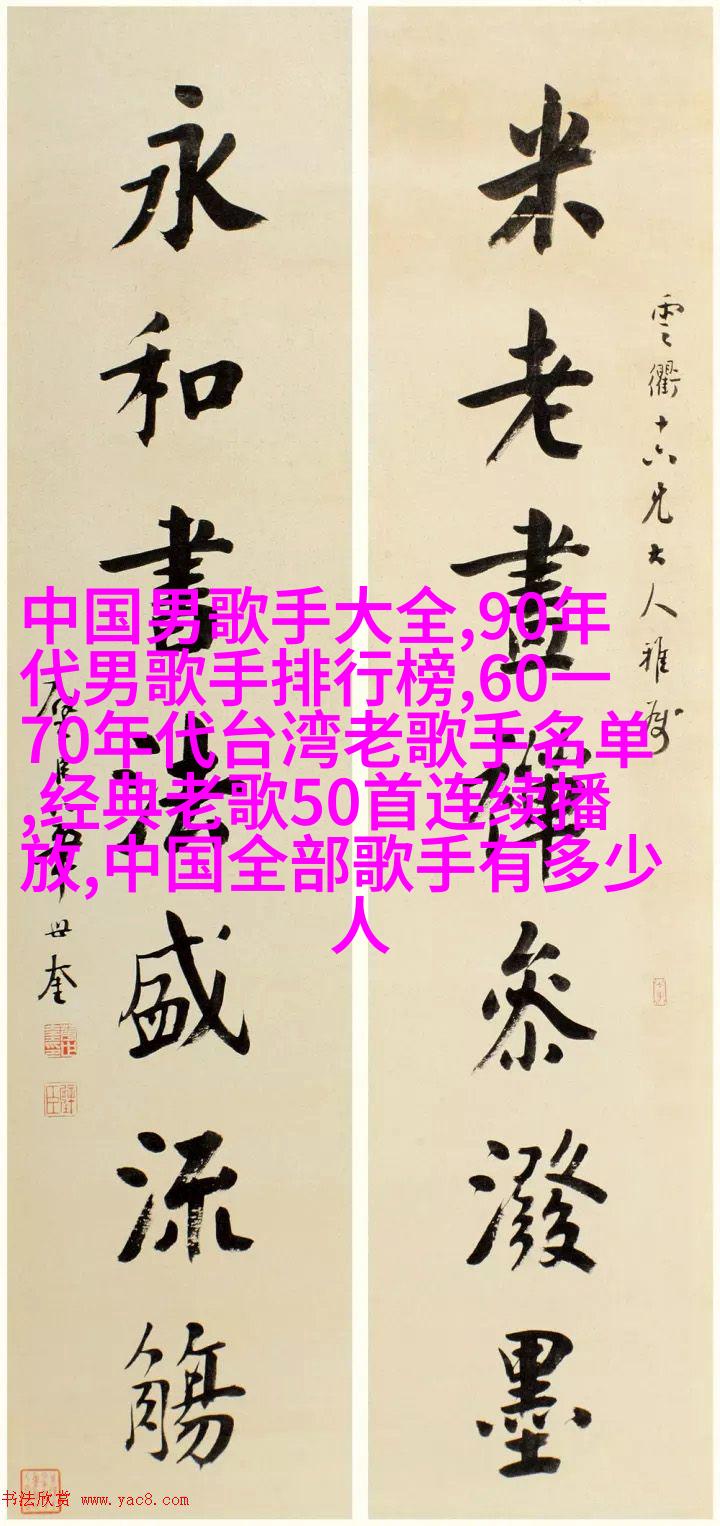 雲衢十六兄大人雅屬
米老畫禪參潑墨
永和書法盛流觴
華世奎
中国男歌手大全,90年
代男歌手排行榜,60一
70年代台湾老歌手名单
,经典老歌50首连续播
放,中国全部歌手有多少
人
书法欣赏 www.yac8.com